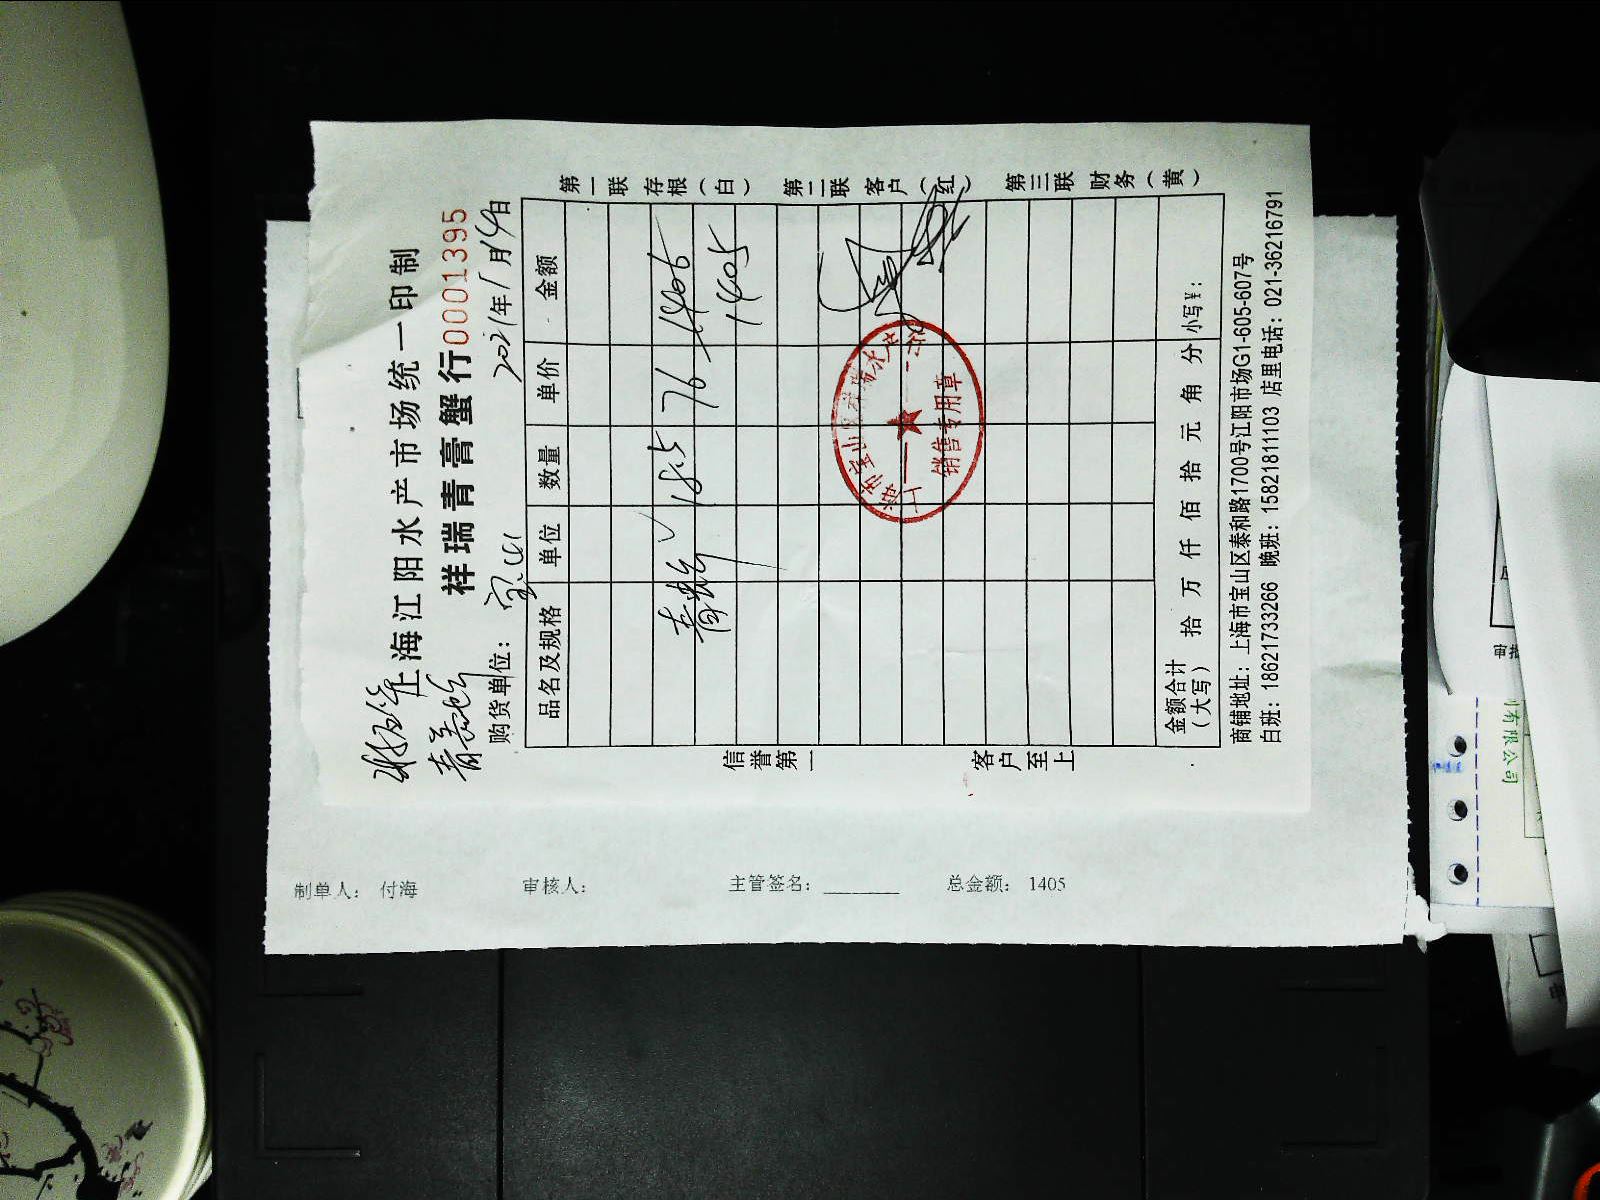 上海江阳水产市场统一印制
祥瑞青膏蟹行 0001395
购货单位： 宝山 2021年1月14日
品名及规格 单位 数量 单价 金额
青蟹 18.5 76 1406
1405
金额合计（大写） 拾 万 仟 佰 拾 元 角 分 小写¥：
商铺地址：上海市宝山区泰和路1700号江阳市场G1-605-607号
白班：18621733266 晚班：15821811103 店里电话：021-36216791
信誉第一 客户至上
第一联 存根（白） 第二联 客户（红） 第三联 财务（黄）
销售专用章
制单人： 付海 审核人： 主管签名： 总金额： 1405
有限公司